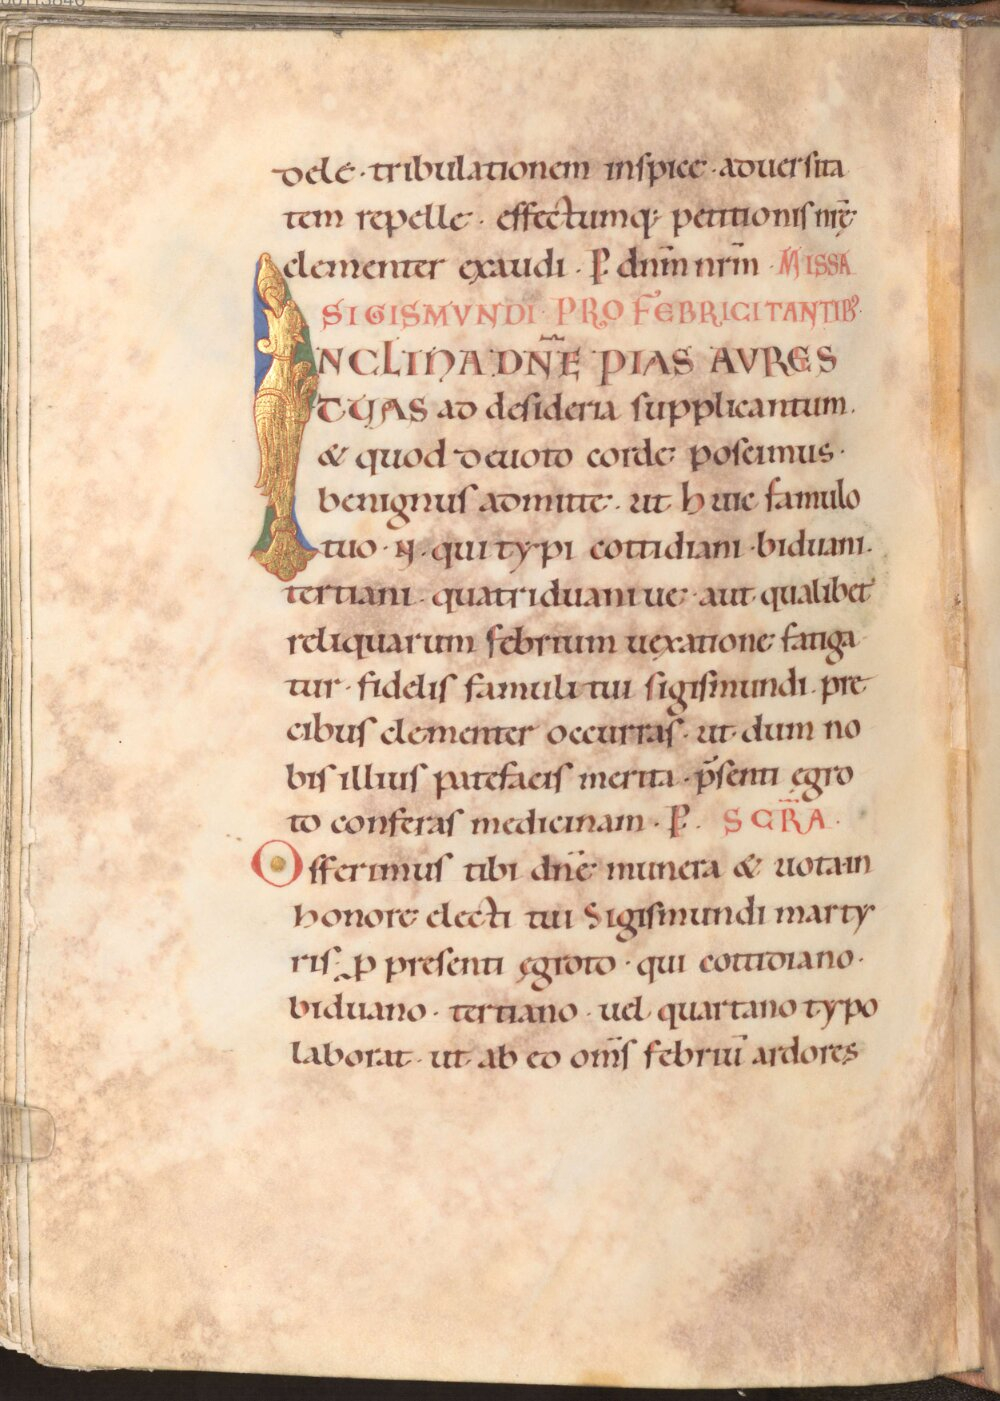 dele · tribulationem inspice · aduersita
tem repelle · effectumq; petitionis nr̄ę
clementer exaudi · P dnm̄ nrm̄ · MISSA
SIGISMVNDI · PRO FEBRICITANTIB;
INCLINA DN̄E PIAS AVRES
TUAS ad desideria supplicantum ·
& quod deuoto corde poscimus ·
benignus admitte · ut huic famulo
tuo · N · qui typi cottidiani · biduani ·
tertiani · quatriduani ue · aut qualibet
reliquarum febrium uexatione fatiga
tur · fidelis famuli tui sigismundi · pre
cibus clementer occurras · ut dum no
bis illius patefacis merita · p̄senti ęgro
to conferas medicinam · P · SCR̄A ·
Offerimus tibi dn̄e munera & uota in
honore electi tui Sigismundi marty
ris · p presenti ęgroto · qui cottidiano ·
biduano · tertiano · uel quartano typo
laborat · ut ab eo om̄s febriū ardores